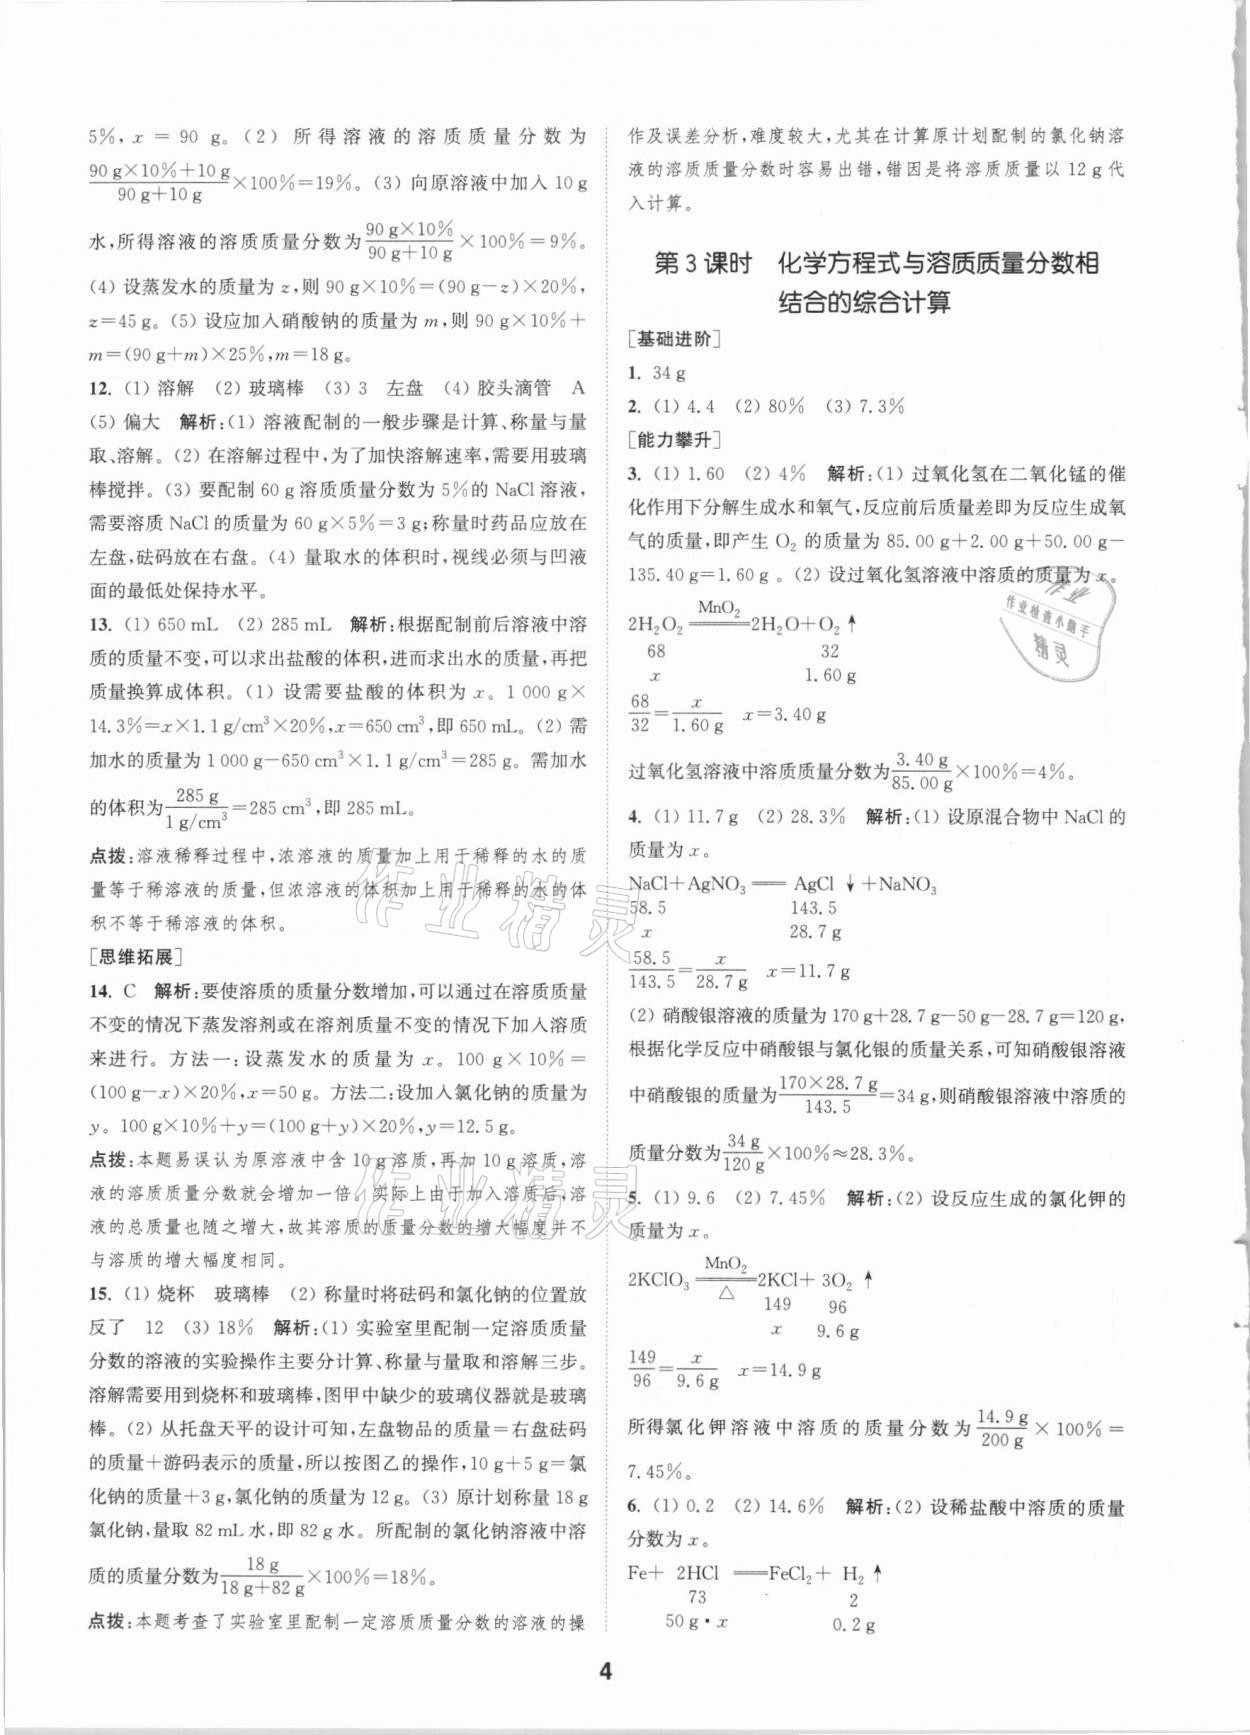 5%,x=90 g。(2) 所得溶液的溶质质量分数为
90 g×10%+10 g/90 g+10 g×100%=19%。(3) 向原溶液中加入 10 g
水,所得溶液的溶质质量分数为90 g×10%/90 g+10 g×100%=9%。
(4) 设蒸发水的质量为 z,则 90 g×10%=(90 g-z)×20%,
z=45 g。(5) 设应加入硝酸钠的质量为 m,则 90 g×10%+
m=(90 g+m)×25%,m=18 g。
12. (1) 溶解 (2) 玻璃棒 (3) 3 左盘 (4) 胶头滴管 A
(5) 偏大 解析:(1) 溶液配制的一般步骤是计算、称量与量
取、溶解。(2) 在溶解过程中,为了加快溶解速率,需要用玻璃
棒搅拌。(3) 要配制 60 g 溶质质量分数为 5%的 NaCl 溶液,
需要溶质 NaCl 的质量为 60 g×5%=3 g;称量时药品应放在
左盘,砝码放在右盘。(4) 量取水的体积时,视线必须与凹液
面的最低处保持水平。
13. (1) 650 mL (2) 285 mL 解析:根据配制前后溶液中溶
质的质量不变,可以求出盐酸的体积,进而求出水的质量,再把
质量换算成体积。(1) 设需要盐酸的体积为 x。1 000 g×
14.3%=x×1.1 g/cm³×20%,x=650 cm³,即 650 mL。(2) 需
加水的质量为 1 000 g-650 cm³×1.1 g/cm³=285 g。需加水
的体积为285 g/1 g/cm³=285 cm³,即 285 mL。
点拨:溶液稀释过程中,浓溶液的质量加上用于稀释的水的质
量等于稀溶液的质量,但浓溶液的体积加上用于稀释的水的体
积不等于稀溶液的体积。
[思维拓展]
14. C 解析:要使溶质的质量分数增加,可以通过在溶质质量
不变的情况下蒸发溶剂或在溶剂质量不变的情况下加入溶质
来进行。方法一:设蒸发水的质量为 x。100 g×10%=
(100 g-x)×20%,x=50 g。方法二:设加入氯化钠的质量为
y。100 g×10%+y=(100 g+y)×20%,y=12.5 g。
点拨:本题易误认为原溶液中含 10 g 溶质,再加 10 g 溶质,溶
液的溶质质量分数就会增加一倍。实际上由于加入溶质后,溶
液的总质量也随之增大,故其溶质的质量分数的增大幅度并不
与溶质的增大幅度相同。
15. (1) 烧杯 玻璃棒 (2) 称量时将砝码和氯化钠的位置放
反了 12 (3) 18% 解析:(1) 实验室里配制一定溶质质量
分数的溶液的实验操作主要分计算、称量与量取和溶解三步。
溶解需要用到烧杯和玻璃棒,图甲中缺少的玻璃仪器就是玻璃
棒。(2) 从托盘天平的设计可知,左盘物品的质量=右盘砝码
的质量+游码表示的质量,所以按图乙的操作,10 g+5 g=氯
化钠的质量+3 g,氯化钠的质量为 12 g。(3) 原计划称量 18 g
氯化钠,量取 82 mL 水,即 82 g 水。所配制的氯化钠溶液中溶
质的质量分数为18 g/18 g+82 g×100%=18%。
点拨:本题考查了实验室里配制一定溶质质量分数的溶液的操
作及误差分析,难度较大,尤其在计算原计划配制的氯化钠溶
液的溶质质量分数时容易出错,错因是将溶质质量以 12 g 代
入计算。
第 3 课时 化学方程式与溶质质量分数相
结合的综合计算
[基础进阶]
1. 34 g
2. (1) 4.4 (2) 80% (3) 7.3%
[能力攀升]
3. (1) 1.60 (2) 4% 解析:(1) 过氧化氢在二氧化锰的催
化作用下分解生成水和氧气,反应前后质量差即为反应生成氧
气的质量,即产生 O₂ 的质量为 85.00 g+2.00 g+50.00 g-
135.40 g=1.60 g 。(2) 设过氧化氢溶液中溶质的质量为 x。
MnO₂
2H₂O₂═══2H₂O+O₂↑
68 32
x 1.60 g
68/32=x/1.60 g x=3.40 g
过氧化氢溶液中溶质质量分数为3.40 g/85.00 g×100%=4%。
4. (1) 11.7 g (2) 28.3% 解析:(1) 设原混合物中 NaCl 的
质量为 x。
NaCl+AgNO₃═══AgCl↓+NaNO₃
58.5 143.5
x 28.7 g
58.5/143.5=x/28.7 g x=11.7 g
(2) 硝酸银溶液的质量为 170 g+28.7 g-50 g-28.7 g=120 g,
根据化学反应中硝酸银与氯化银的质量关系,可知硝酸银溶液
中硝酸银的质量为170×28.7 g/143.5=34 g,则硝酸银溶液中溶质的
质量分数为34 g/120 g×100%≈28.3%。
5. (1) 9.6 (2) 7.45% 解析:(2) 设反应生成的氯化钾的
质量为 x。
MnO₂
2KClO₃═══2KCl+3O₂↑
△
149 96
x 9.6 g
149/96=x/9.6 g x=14.9 g
所得氯化钾溶液中溶质的质量分数为14.9 g/200 g×100%=
7.45%。
6. (1) 0.2 (2) 14.6% 解析:(2) 设稀盐酸中溶质的质量
分数为 x。
Fe+2HCl═══FeCl₂+H₂↑
73 2
50 g·x 0.2 g
4
作业
作业检查小助手
精灵
作业精灵
作业精灵